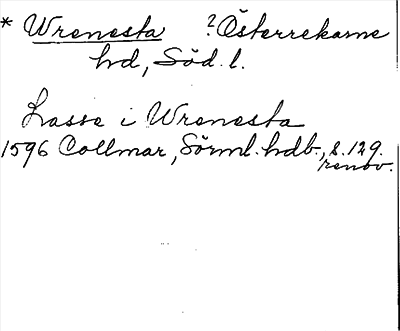 * Wrenesta ? Österrekarne
hd, Söd. l.
Lasse i Wrenesta
1596 Collmar, Sörml. hdb., s. 129.
renov.